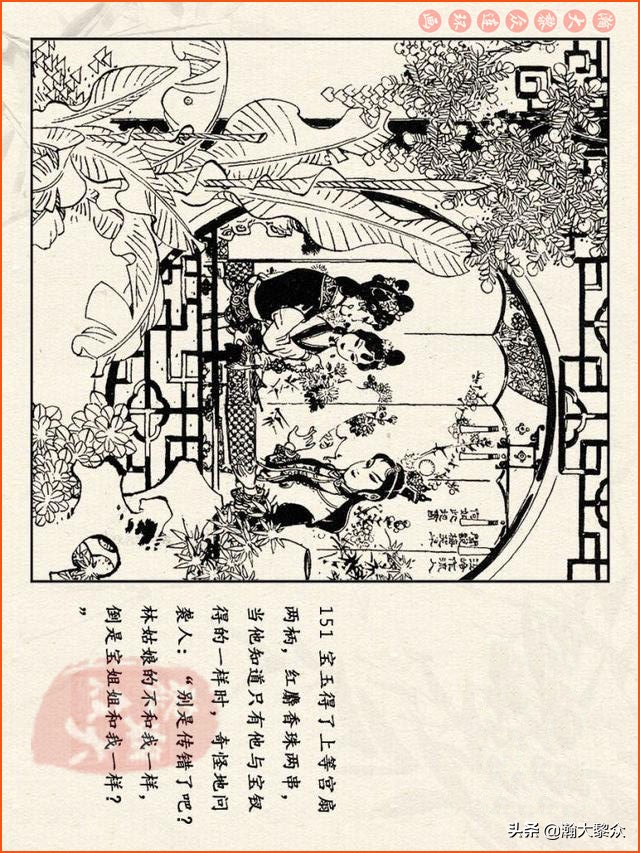 瀚大黎众连环画
151 宝玉得了上等宫扇
两柄，红麝香珠两串，
当他知道只有他与宝钗
得的一样时，奇怪地问
袭人：“别是传错了吧？
林姑娘的不和我一样，
倒是宝姐姐和我一样？
”
头条 @瀚大黎众